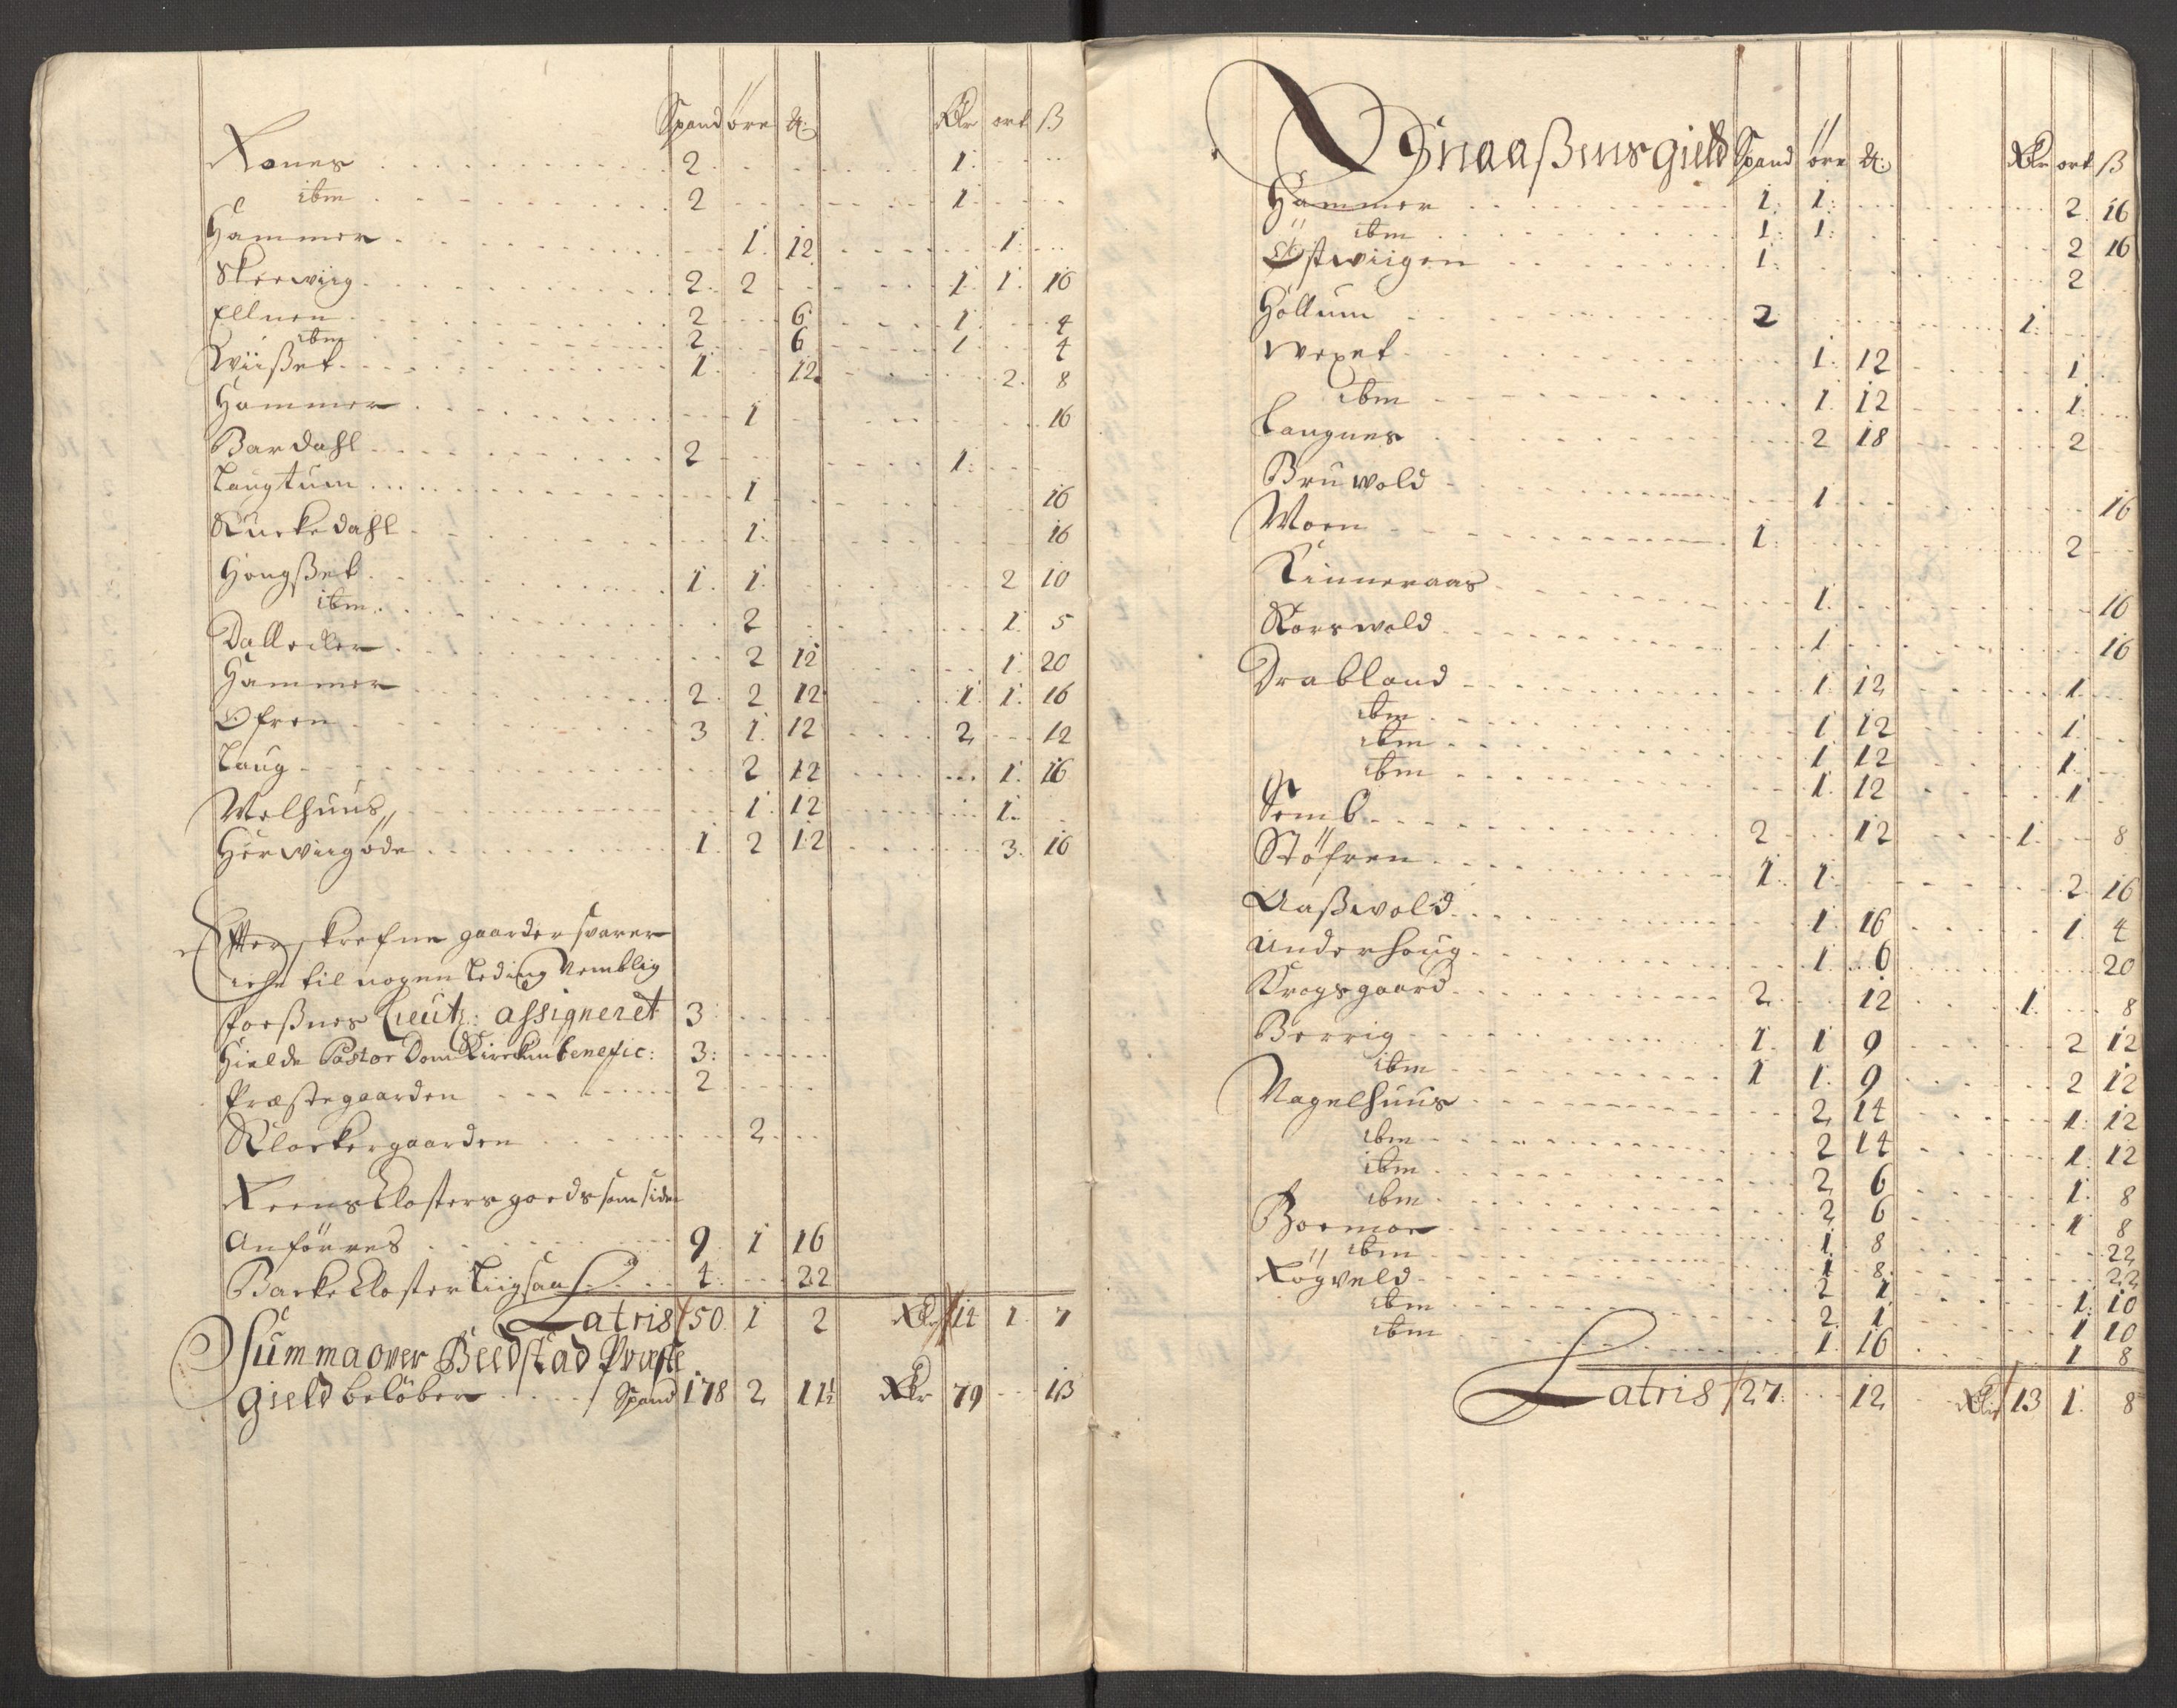 Spand öre ℔: Rdr ort ß
Rones 2 1
ibm 2 1
Hammer 1 12 1
Skerwiig 2 2 1 1 16
Ellnen 2 6 1 4
ibm 2 6 1 4
Wiißet 1 12 2 8
Hammer 1 16
Bardahl 2 1
Langtum 1 16
Kirkedahl 1 16
Hougßet 1 1 2 10
ibm 2 1 5
Dalledler 2 12 1 20
Hammer 2 2 12 1 1 16
Ofren 3 1 12 2 12
Laug 2 12 1 16
Welhuus 1 12 1
Herwiigöde 1 2 12 3 16
Efterskrefne gaarder svarer
iche til nogen Leding Nemblig
Foeßnes Lieutz: assigneret 3
Hielde Pastor Dom Kirchens benefic: 3
Præstegaarden 2
Klockergaarden 2
Reens Closters goeds som siden
Anförres 9 1 16
Backe Closter Liigsaa 4 22
Latris 50 1 2 Rdr 14 1 7
Summa over Beedstad Præste
gield belöber Spand 178 2 11½ Rdr 79 13
Snaaßens gield Spand öre ℔: Rdr ort ß
Hammer 1 1 2 16
ibm 1 1 2 16
Östwiigen 1 2
Hollum 2 1
Wexet 1 12 1
ibm 1 12 1
Langnes 2 18 2
Bruwold 1 16
Woen 1 2
Finneraas 1 16
Korswold 1 16
Drabland 1 12 1
ibm 1 12 1
ibm 1 12 1
ibm 1 12 1
Semb 2 12 1 8
Stöfren 1 1 2 16
Aaßwold 1 16 1 4
Underhoug 1 6 20
Krogsgaard 2 12 1 8
Berrig 1 1 9 2 12
ibm 1 1 9 2 12
Nagelhuus 2 14 1 12
ibm 2 14 1 12
ibm 2 6 1 8
ibm 2 6 1 8
Boemoe 1 8 22
ibm 1 8 22
Rögveld 2 1 1 10
ibm 2 1 1 10
ibm 1 16 1 8
Latris 27 12 Rdr 13 1 8